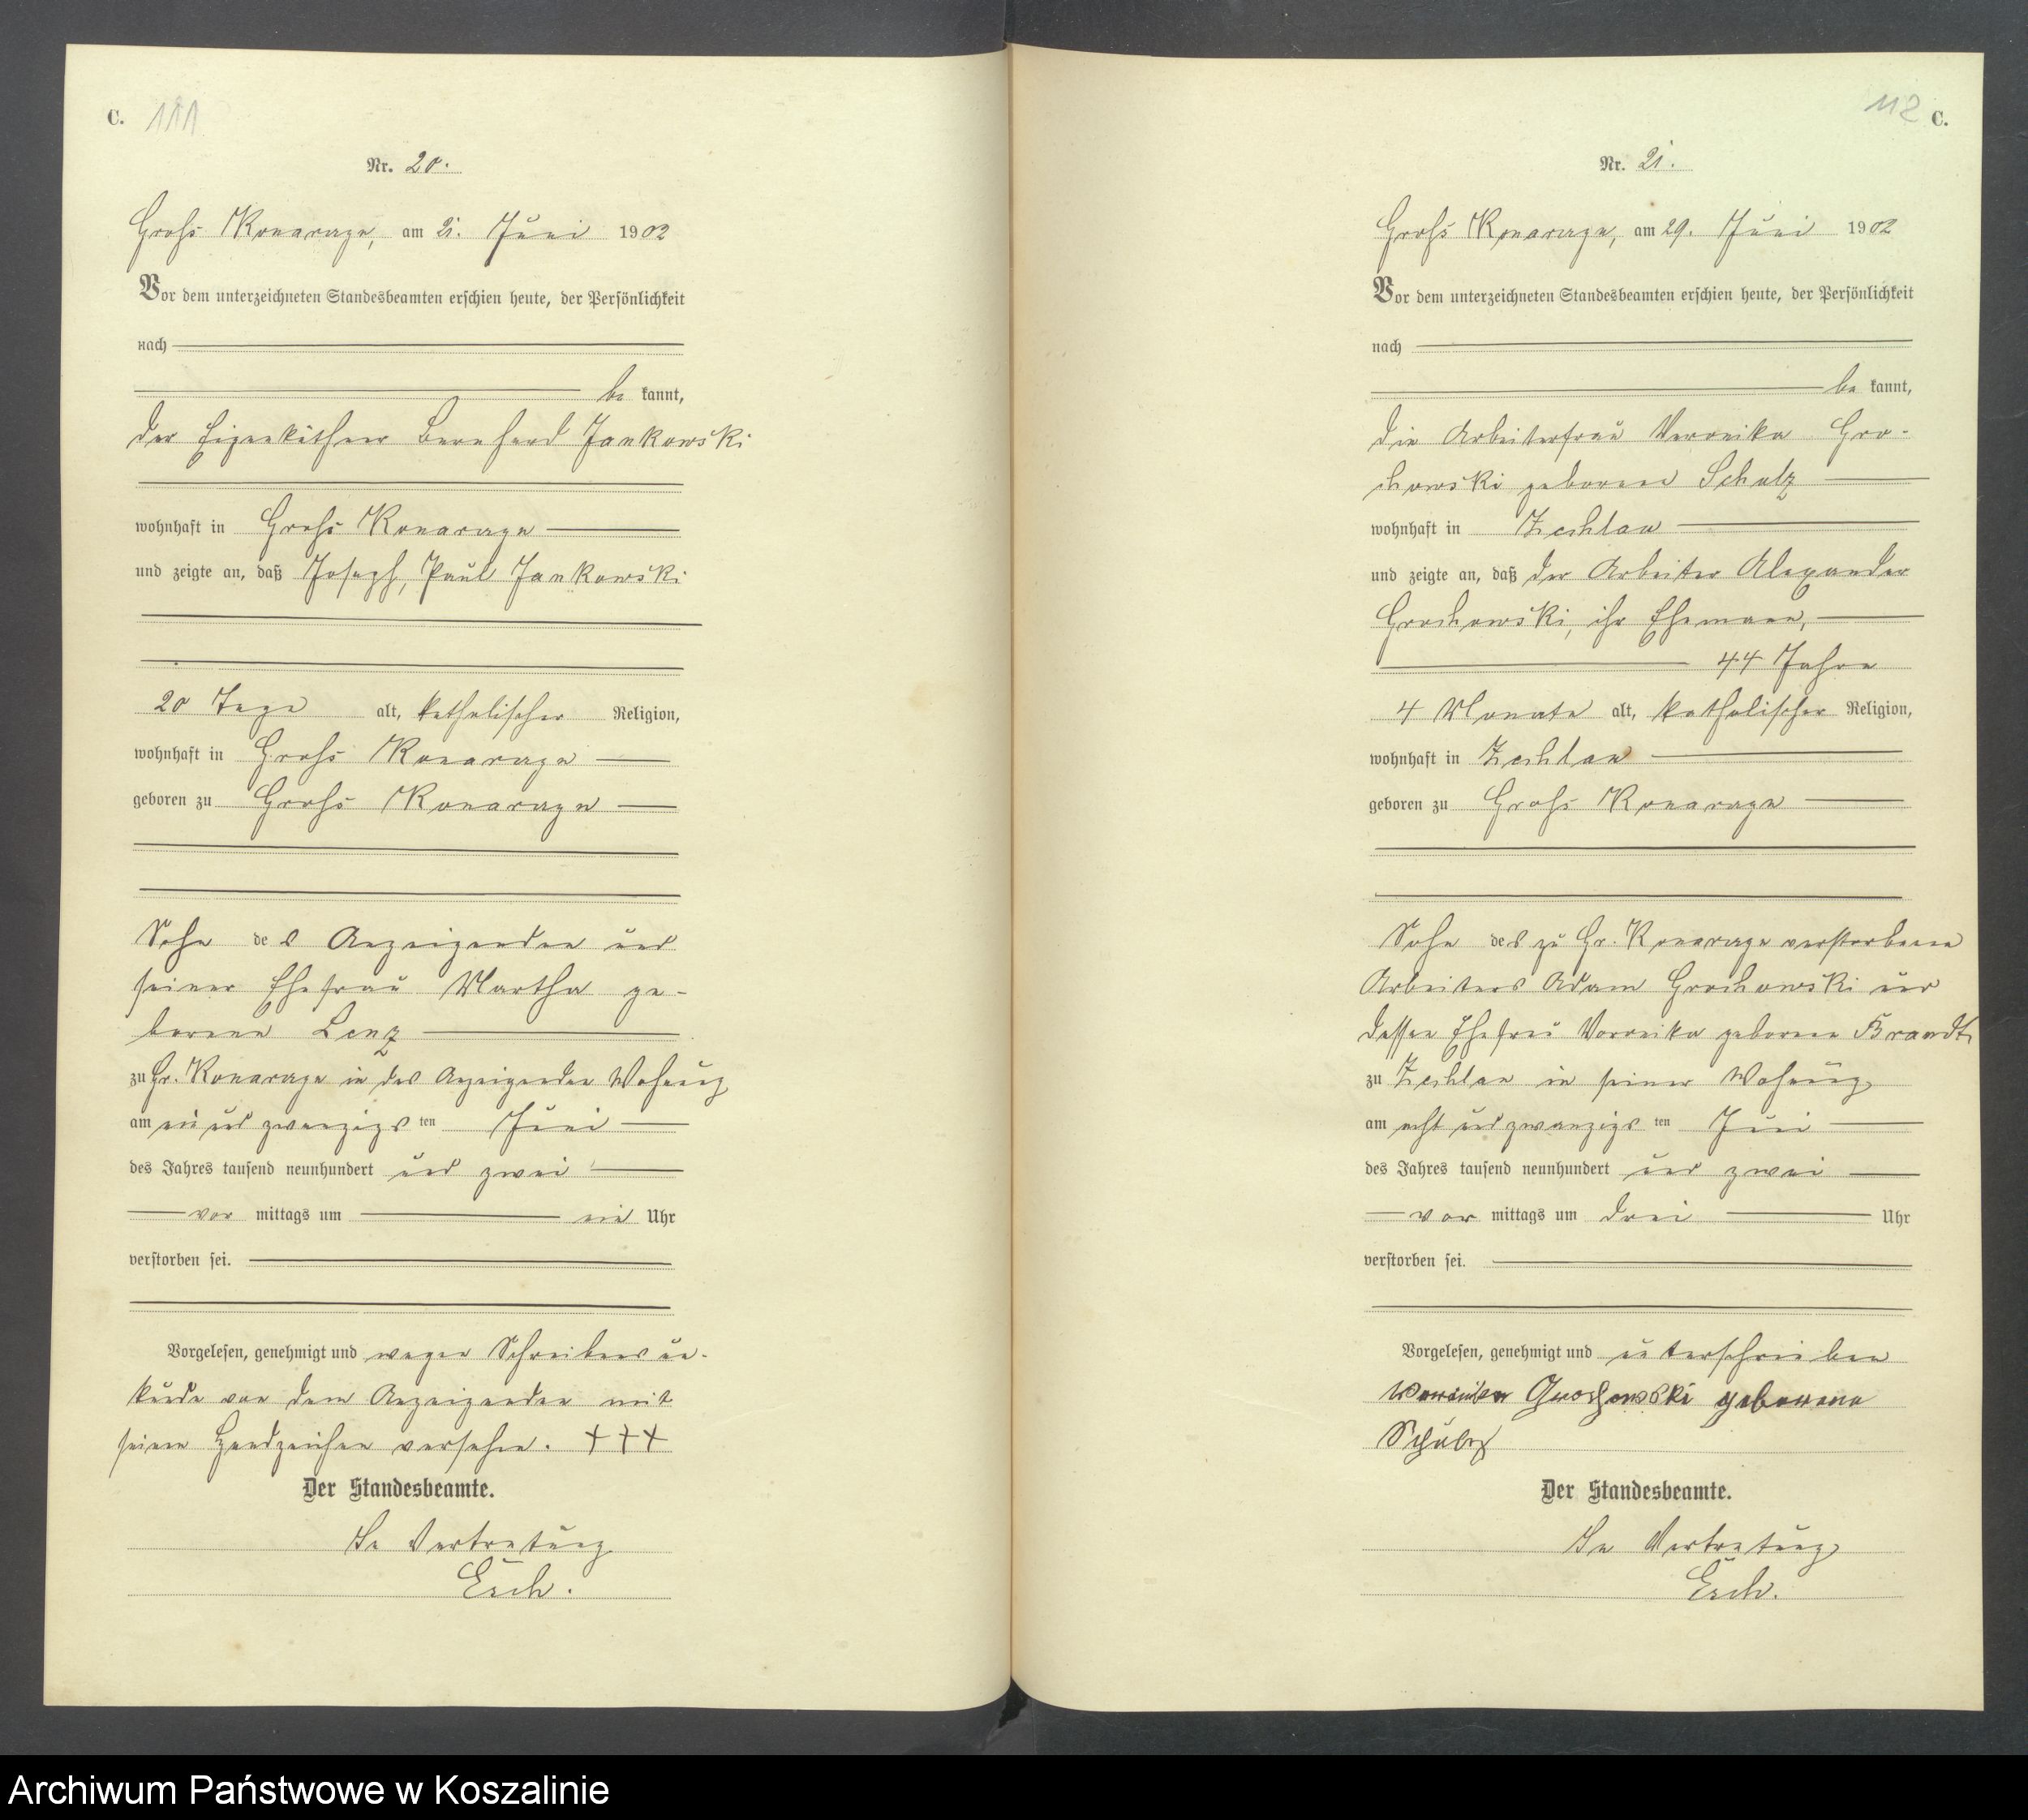 C. 111
Nr. 20.
Groß Konarzyn, am 21. Juni 1902
Vor dem unterzeichneten Standesbeamten erschien heute, der Persönlichkeit
nach
be kannt,
der Eigenkäthner Bernhard Jankowski
wohnhaft in Groß Konarzyn
und zeigte an, daß Joseph, Paul Jankowski
20 Tage alt, katholischer Religion,
wohnhaft in Groß Konarzyn
geboren zu Groß Konarzyn
Sohn des Anzeigenden und
seiner Ehefrau Martha ge-
borene Lenz
zu Gr. Konarzyn in des Anzeigenden Wohnung
am ein und zwanzigsten Juni
des Jahres tausend neunhundert und zwei
vor mittags um ein Uhr
verstorben sei.
Vorgelesen, genehmigt und wegen Schreibens un-
kunde von dem Anzeigenden mit
seinem Handzeichen versehen. +++
Der Standesbeamte.
In Vertretung
112 C.
Nr. 21.
Groß Konarzyn, am 29. Juni 1902
Vor dem unterzeichneten Standesbeamten erschien heute, der Persönlichkeit
nach
be kannt,
die Arbeiterfrau Veronika Gro-
chowski geborene Schulz
wohnhaft in Zechlau
und zeigte an, daß der Arbeiter Alexander
Grochowski, ihr Ehemann,
44 Jahre
4 Monate alt, katholischer Religion,
wohnhaft in Zechlau
geboren zu Groß Konarzyn
Sohn des zu Gr. Konarzyn verstorbenen
Arbeiters Adam Grochowski und
dessen Ehefrau Veronika geborene Brandt,
zu Zechlau in seiner Wohnung
am acht und zwanzigsten Juni
des Jahres tausend neunhundert und zwei
vor mittags um drei Uhr
verstorben sei.
Vorgelesen, genehmigt und unterschrieben
Weronika Grochowski geborene
Schulz
Der Standesbeamte.
In Vertretung
Archiwum Państwowe w Koszalinie